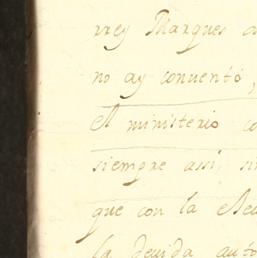 rrey Marques
no ay convento,
el ministerio co
siempre assi, si
que con la Rev
la devida auto